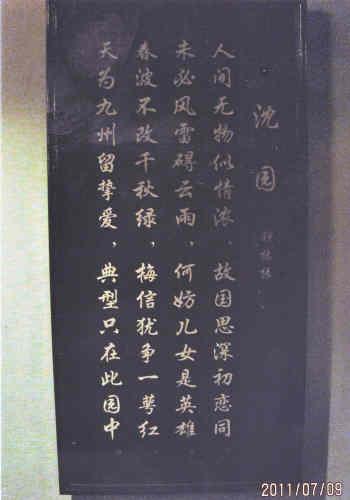 沈园
人间无物似情浓，故国思深初恋同
未必风雷碍云雨，何妨儿女是英雄
春波不改千秋绿，梅信犹争一萼红
天为九州留挚爱，典型只在此园中
2011/07/09